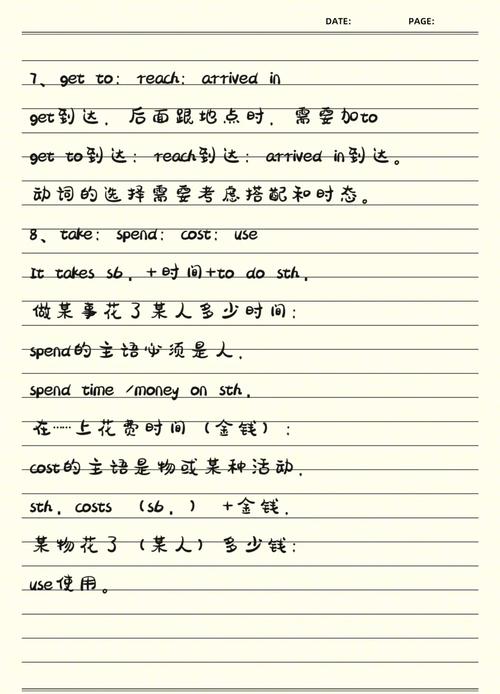 DATE: PAGE:
7、get to: reach: arrived in
get到达. 后面跟地点时. 需要加to
get to到达: reach到达: arrived in到达。
动词的选择需要考虑搭配和时态。
8、take: spend: cost: use
It takes sb. +时间+to do sth.
做某事花了某人多少时间:
spend的主语必须是人.
spend time /money on sth.
在……上花费时间（金钱）:
cost的主语是物或某种活动.
sth. costs （sb.） +金钱.
某物花了（某人）多少钱:
use使用。